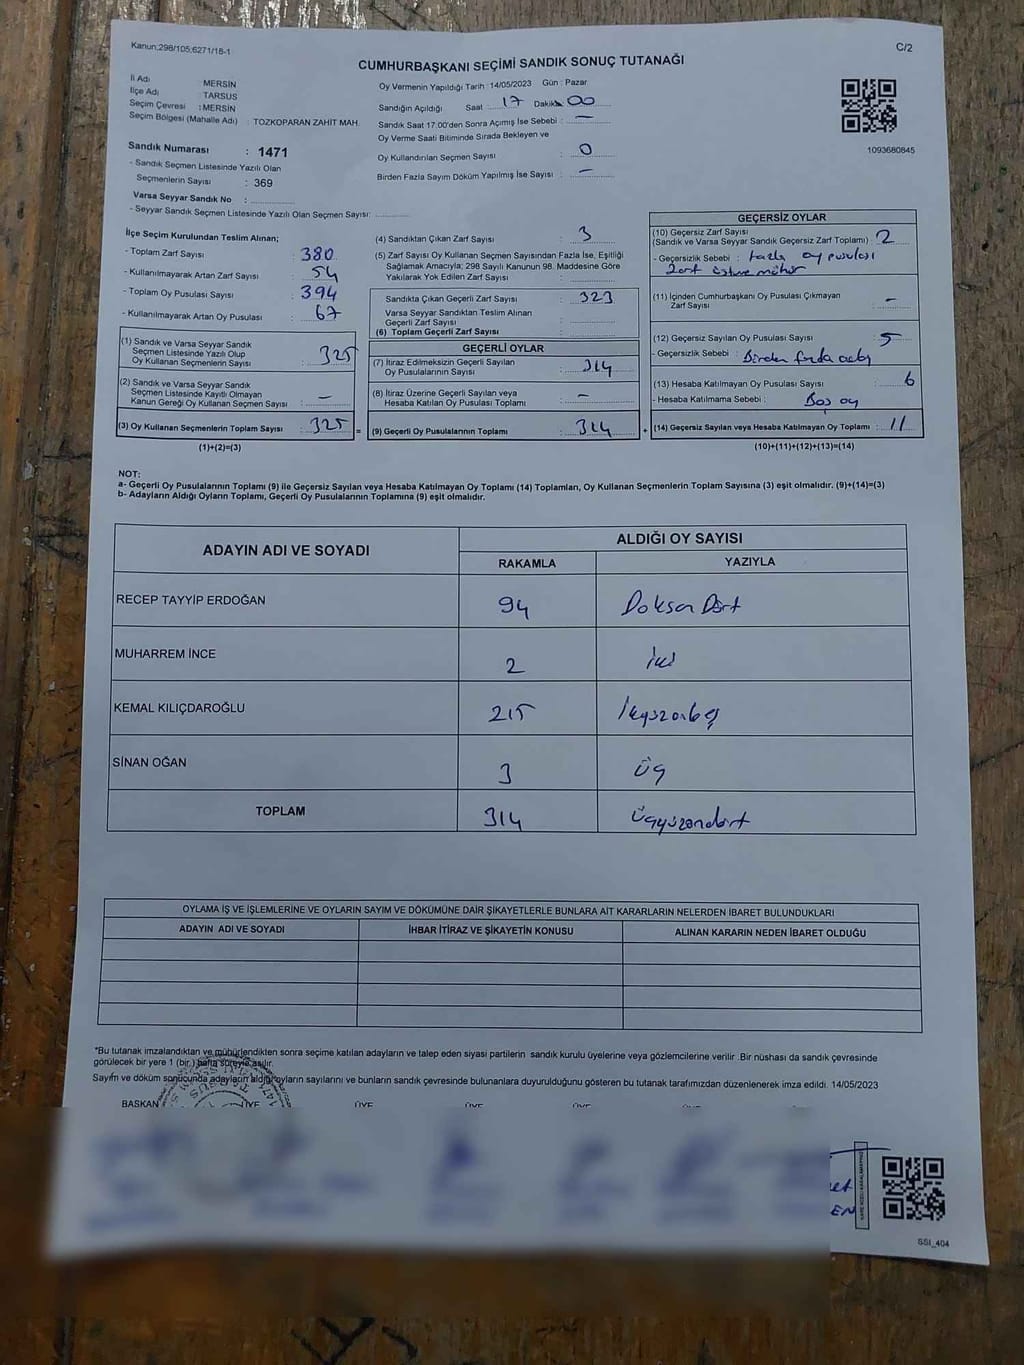 Kanun;298/105;6271/18-1
C/2
CUMHURBAŞKANI SEÇİMİ SANDIK SONUÇ TUTANAĞI
İl Adı : MERSİN
İlçe Adı : TARSUS
Seçim Çevresi : MERSİN
Seçim Bölgesi (Mahalle Adı) : TOZKOPARAN ZAHİT MAH.
Sandık Numarası : 1471
- Sandık Seçmen Listesinde Yazılı Olan
Seçmenlerin Sayısı : 369
Varsa Seyyar Sandık No :
- Seyyar Sandık Seçmen Listesinde Yazılı Olan Seçmen Sayısı:
Oy Vermenin Yapıldığı Tarih :14/05/2023 Gün : Pazar
Sandığın Açıldığı Saat : 17 Dakika : 00
Sandık Saat 17:00'den Sonra Açımış İse Sebebi : —
Oy Verme Saati Bitiminde Sırada Bekleyen ve
Oy Kullandırılan Seçmen Sayısı : 0
Birden Fazla Sayım Döküm Yapılmış İse Sayısı : —
1093680845
İlçe Seçim Kurulundan Teslim Alınan;
- Toplam Zarf Sayısı : 380
- Kullanılmayarak Artan Zarf Sayısı : 54
- Toplam Oy Pusulası Sayısı : 394
- Kullanılmayarak Artan Oy Pusulası : 67
(1) Sandık ve Varsa Seyyar Sandık
Seçmen Listesinde Yazılı Olup
Oy Kullanan Seçmenlerin Sayısı : 325
(2) Sandık ve Varsa Seyyar Sandık
Seçmen Listesinde Kayıtlı Olmayan
Kanun Gereği Oy Kullanan Seçmen Sayısı : —
(3) Oy Kullanan Seçmenlerin Toplam Sayısı : 325 =
(1)+(2)=(3)
(4) Sandıktan Çıkan Zarf Sayısı : 3
(5) Zarf Sayısı Oy Kullanan Seçmen Sayısından Fazla İse, Eşitliği
Sağlamak Amacıyla; 298 Sayılı Kanunun 98. Maddesine Göre
Yakılarak Yok Edilen Zarf Sayısı :
Sandıkta Çıkan Geçerli Zarf Sayısı : 323
Varsa Seyyar Sandıktan Teslim Alınan
Geçerli Zarf Sayısı :
(6) Toplam Geçerli Zarf Sayısı :
GEÇERLİ OYLAR
(7) İtiraz Edilmeksizin Geçerli Sayılan
Oy Pusulalarının Sayısı : 314
(8) İtiraz Üzerine Geçerli Sayılan veya
Hesaba Katılan Oy Pusulası Toplamı : —
(9) Geçerli Oy Pusulalarının Toplamı : 314 +
GEÇERSİZ OYLAR
(10) Geçersiz Zarf Sayısı
(Sandık ve Varsa Seyyar Sandık Geçersiz Zarf Toplamı) : 2
- Geçersizlik Sebebi : fazla oy pusulası
zarf üstüne mühür
(11) İçinden Cumhurbaşkanı Oy Pusulası Çıkmayan
Zarf Sayısı : —
(12) Geçersiz Sayılan Oy Pusulası Sayısı : 5
- Geçersizlik Sebebi : Birden fazla aday
(13) Hesaba Katılmayan Oy Pusulası Sayısı : 6
- Hesaba Katılmama Sebebi : Boş oy
(14) Geçersiz Sayılan veya Hesaba Katılmayan Oy Toplamı : 11
(10)+(11)+(12)+(13)=(14)
NOT:
a- Geçerli Oy Pusulalarının Toplamı (9) ile Geçersiz Sayılan veya Hesaba Katılmayan Oy Toplamı (14) Toplamları, Oy Kullanan Seçmenlerin Toplam Sayısına (3) eşit olmalıdır. (9)+(14)=(3)
b- Adayların Aldığı Oyların Toplamı, Geçerli Oy Pusulalarının Toplamına (9) eşit olmalıdır.
ADAYIN ADI VE SOYADI
ALDIĞI OY SAYISI
RAKAMLA YAZIYLA
RECEP TAYYİP ERDOĞAN 94 Doksan Dört
MUHARREM İNCE 2 iki
KEMAL KILIÇDAROĞLU 215 İkiyüzonbeş
SİNAN OĞAN 3 üç
TOPLAM 314 üçyüzondört
OYLAMA İŞ VE İŞLEMLERİNE VE OYLARIN SAYIM VE DÖKÜMÜNE DAİR ŞİKAYETLERLE BUNLARA AİT KARARLARIN NELERDEN İBARET BULUNDUKLARI
ADAYIN ADI VE SOYADI İHBAR İTİRAZ VE ŞİKAYETİN KONUSU ALINAN KARARIN NEDEN İBARET OLDUĞU
*Bu tutanak imzalandıktan ve mühürlendikten sonra seçime katılan adayların ve talep eden siyasi partilerin sandık kurulu üyelerine veya gözlemcilerine verilir .Bir nüshası da sandık çevresinde
görülecek bir yere 1 (bir.) hafta süreyle asılır.
Sayım ve döküm sonucunda adayların aldığı oyların sayılarını ve bunların sandık çevresinde bulunanlara duyurulduğunu gösteren bu tutanak tarafımızdan düzenlenerek imza edildi. 14/05/2023
BAŞKAN ÜYE ÜYE ÜYE ÜYE ÜYE
SSI_404